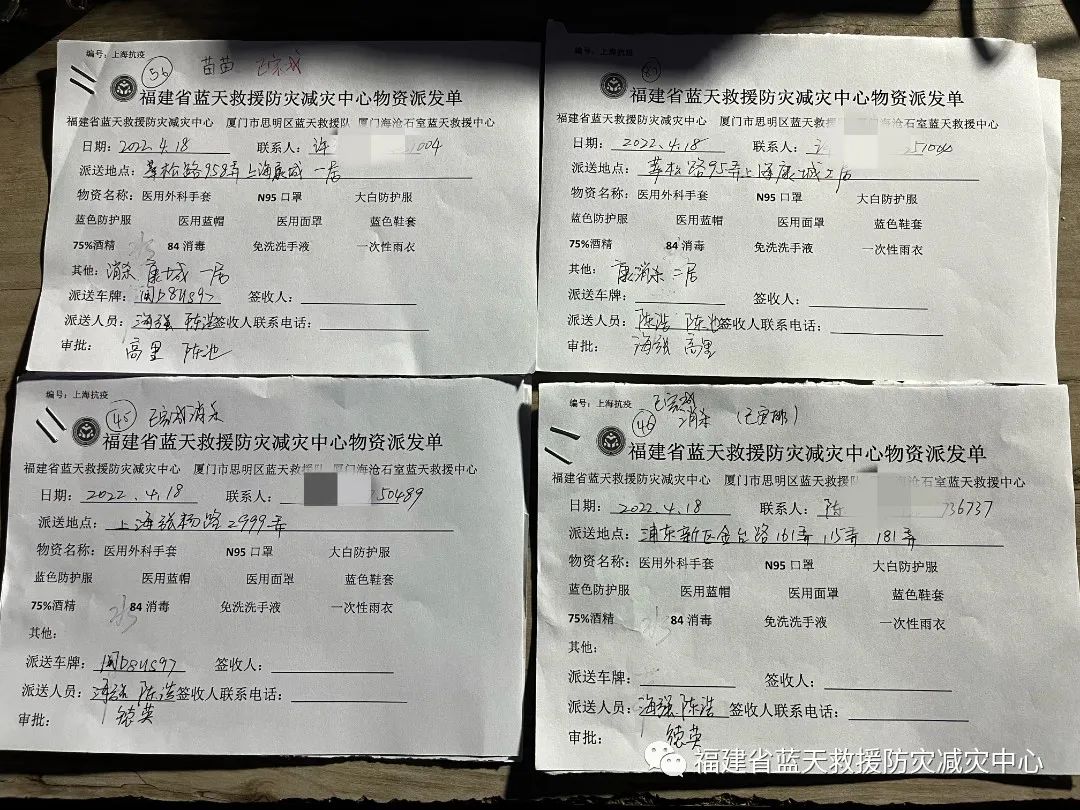 编号：上海抗疫
56 苗苗 已完成
福建省蓝天救援防灾减灾中心物资派发单
福建省蓝天救援防灾减灾中心 厦门市思明区蓝天救援队 厦门海沧石室蓝天救援中心
日期：2022.4.18 联系人：许 1004
派送地点：莘松路958弄上海康城一居
物资名称：医用外科手套 N95口罩 大白防护服
蓝色防护服 医用蓝帽 医用面罩 蓝色鞋套
75%酒精 84消毒 免洗洗手液 一次性雨衣
其他：消杀 康城 一居
派送车牌：闽D8US97 签收人：
派送人员：海强 陈浩 签收人联系电话：
审批：高里 陈池
编号：上海抗疫
福建省蓝天救援防灾减灾中心物资派发单
福建省蓝天救援防灾减灾中心 厦门市思明区蓝天救援 厦门海沧石室蓝天救援中心
日期：2022.4.18 联系人：许 51004
派送地点：莘松路95弄上海康城2居
物资名称：医用外科手套 N95口罩 大白防护服
蓝色防护服 医用蓝帽 医用面罩 蓝色鞋套
75%酒精 84消毒 免洗洗手液 一次性雨衣
其他：康消杀二居
派送车牌： 签收人：
派送人员：陈浩 陈池 签收人联系电话：
审批：海强 高里
编号：上海抗疫
45 已完成消杀
福建省蓝天救援防灾减灾中心物资派发单
福建省蓝天救援防灾减灾中心 厦门市思明区蓝天救援队 厦门海沧石室蓝天救援中心
日期：2022.4.18 联系人： 50489
派送地点：上海张杨路2999弄
物资名称：医用外科手套 N95口罩 大白防护服
蓝色防护服 医用蓝帽 医用面罩 蓝色鞋套
75%酒精 84消毒 免洗洗手液 一次性雨衣
其他：
派送车牌：闽D8US97 签收人：
派送人员：海强 陈浩 签收人联系电话：
审批：德英
编号：上海抗疫
46 已完成
消杀
福建省蓝天救援防灾减灾中心物资派发单
福建省蓝天救援防灾减灾中心 厦门市思明区蓝天救援 厦门海沧石室蓝天救援中心
日期：2022.4.18 联系人：陈 736737
派送地点：浦东新区金台路161弄 115弄 181弄
物资名称：医用外科手套 N95口罩 大白防护服
蓝色防护服 医用蓝帽 医用面罩 蓝色鞋套
75%酒精 84消毒 免洗洗手液 一次性雨衣
其他：
派送车牌： 签收人：
派送人员：海强 陈浩 签收人联系电话：
审批：德英
福建省蓝天救援防灾减灾中心